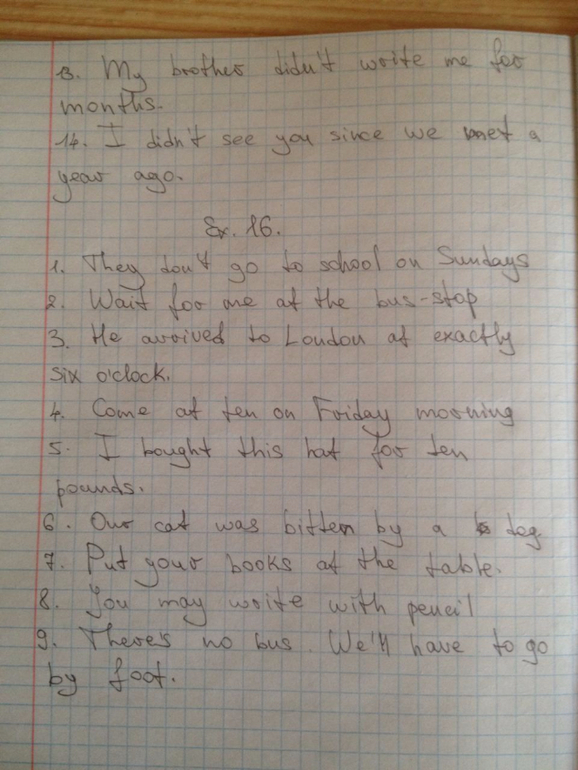 13. My brother didn't write me for
months.
14. I didn't see you since we met a
year ago.
Ex. 16.
1. They don't go to school on Sundays
2. Wait for me at the bus-stop
3. He arrived to London at exactly
six o'clock.
4. Come at ten on Friday morning
5. I bought this hat for ten
pounds.
6. Our cat was bitten by a dog
7. Put your books at the table.
8. You may write with pencil
9. There's no bus. We'll have to go
by foot.